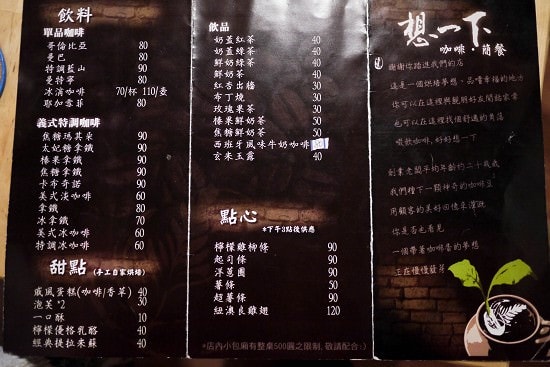 飲料
單品咖啡
哥倫比亞 80
曼巴 80
特調藍山 80
曼特寧 80
冰滴咖啡 70/杯 110/壺
耶加雪菲 80
義式特調咖啡
焦糖瑪其朵 90
太妃糖拿鐵 90
榛果拿鐵 90
焦糖拿鐵 90
卡布奇諾 90
美式淡咖啡 60
拿鐵 80
冰拿鐵 70
美式冰咖啡 60
特調冰咖啡 60
甜點 (手工自家烘焙)
戚風蛋糕(咖啡/香草) 40
泡芙 *2 30
一口酥 10
檸檬優格乳酪 40
經典提拉米蘇 40
飲品
奶蓋紅茶 40
奶蓋綠茶 40
鮮奶綠茶 40
鮮奶茶 40
紅杏出牆 50
布丁燒 50
玫瑰果茶 30
榛果鮮奶茶 50
焦糖鮮奶茶 50
西班牙風味牛奶咖啡
玄米玉露 40
點心
*下午3點後供應
檸檬雞柳條 90
起司條 90
洋蔥圈 90
薯條 50
起薯條 90
紐澳良雞翅 120
*店內小包廂有整桌500圓之限制, 敬請配合:)
想一下
咖啡.簡餐
謝謝你踏進我們的店
這是一個烘焙夢想、品嚐幸福的地方
你可以在這裡與親朋好友閒話家常
也可以在這裡找個舒適的角落
啜飲咖啡,好好想一下
創業老闆平均年齡約二十幾歲
我們種下一顆神奇的咖啡豆
用顧客的美好回憶來灌溉
你是否也看見
一個帶著咖啡香的夢想
正在慢慢發芽